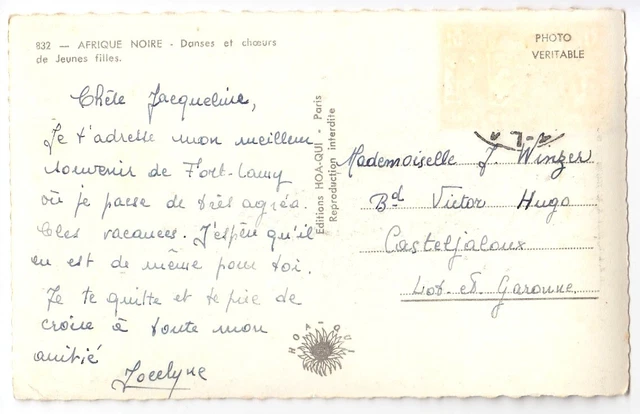 832 — AFRIQUE NOIRE - Danses et chœurs
de Jeunes filles.
PHOTO
VERITABLE
Chère Jacqueline,
Je t'adresse mon meilleur
souvenir de Fort-Lamy
où je passe de très agréa-
bles vacances. J'espère qu'il
en est de même pour toi.
Je te quitte et te prie de
croire à toute mon
amitié
Jocelyne
Editions HOA-QUI - Paris
Reproduction interdite
HOA-QUI
Mademoiselle J. Winzer
Bd Victor Hugo
Casteljaloux
Lot. et Garonne.